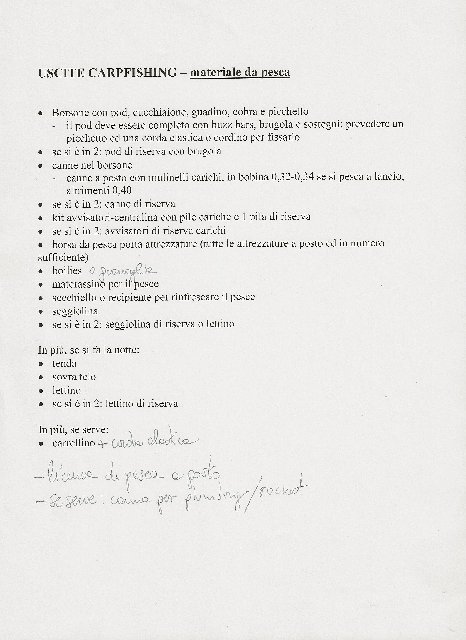 USCITE CARPFISHING – materiale da pesca
• Borsone con pod, cucchiaione, guadino, cobra e picchetto
- il pod deve essere completo con buzz bars, brugola e sostegni; prevedere un
picchetto ed una corda elastica o cordino per fissarlo
• se si è in 2: pod di riserva con brugola
• canne nel borsone
- canne a posto con mulinelli carichi, in bobina 0,32-0,34 se si pesca a lancio,
altrimenti 0,40
• se si è in 2: canne di riserva
• kit avvisatori-centralina con pile cariche e 1 pila di riserva
• se si è in 2: avvisatori di riserva carichi
• borsa da pesca porta attrezzature (tutte le attrezzature a posto ed in numero
sufficiente)
• boilies o granaglie
• materassino per il pesce
• secchiello o recipiente per rinfrescare il pesce
• seggiolina
• se si è in 2: seggiolina di riserva o lettino
In più, se si fa la notte:
• tenda
• sovratelo
• lettino
• se si è in 2: lettino di riserva
In più, se serve:
• carrellino + corda elastica
- licenza di pesca a posto
- se serve: canna per